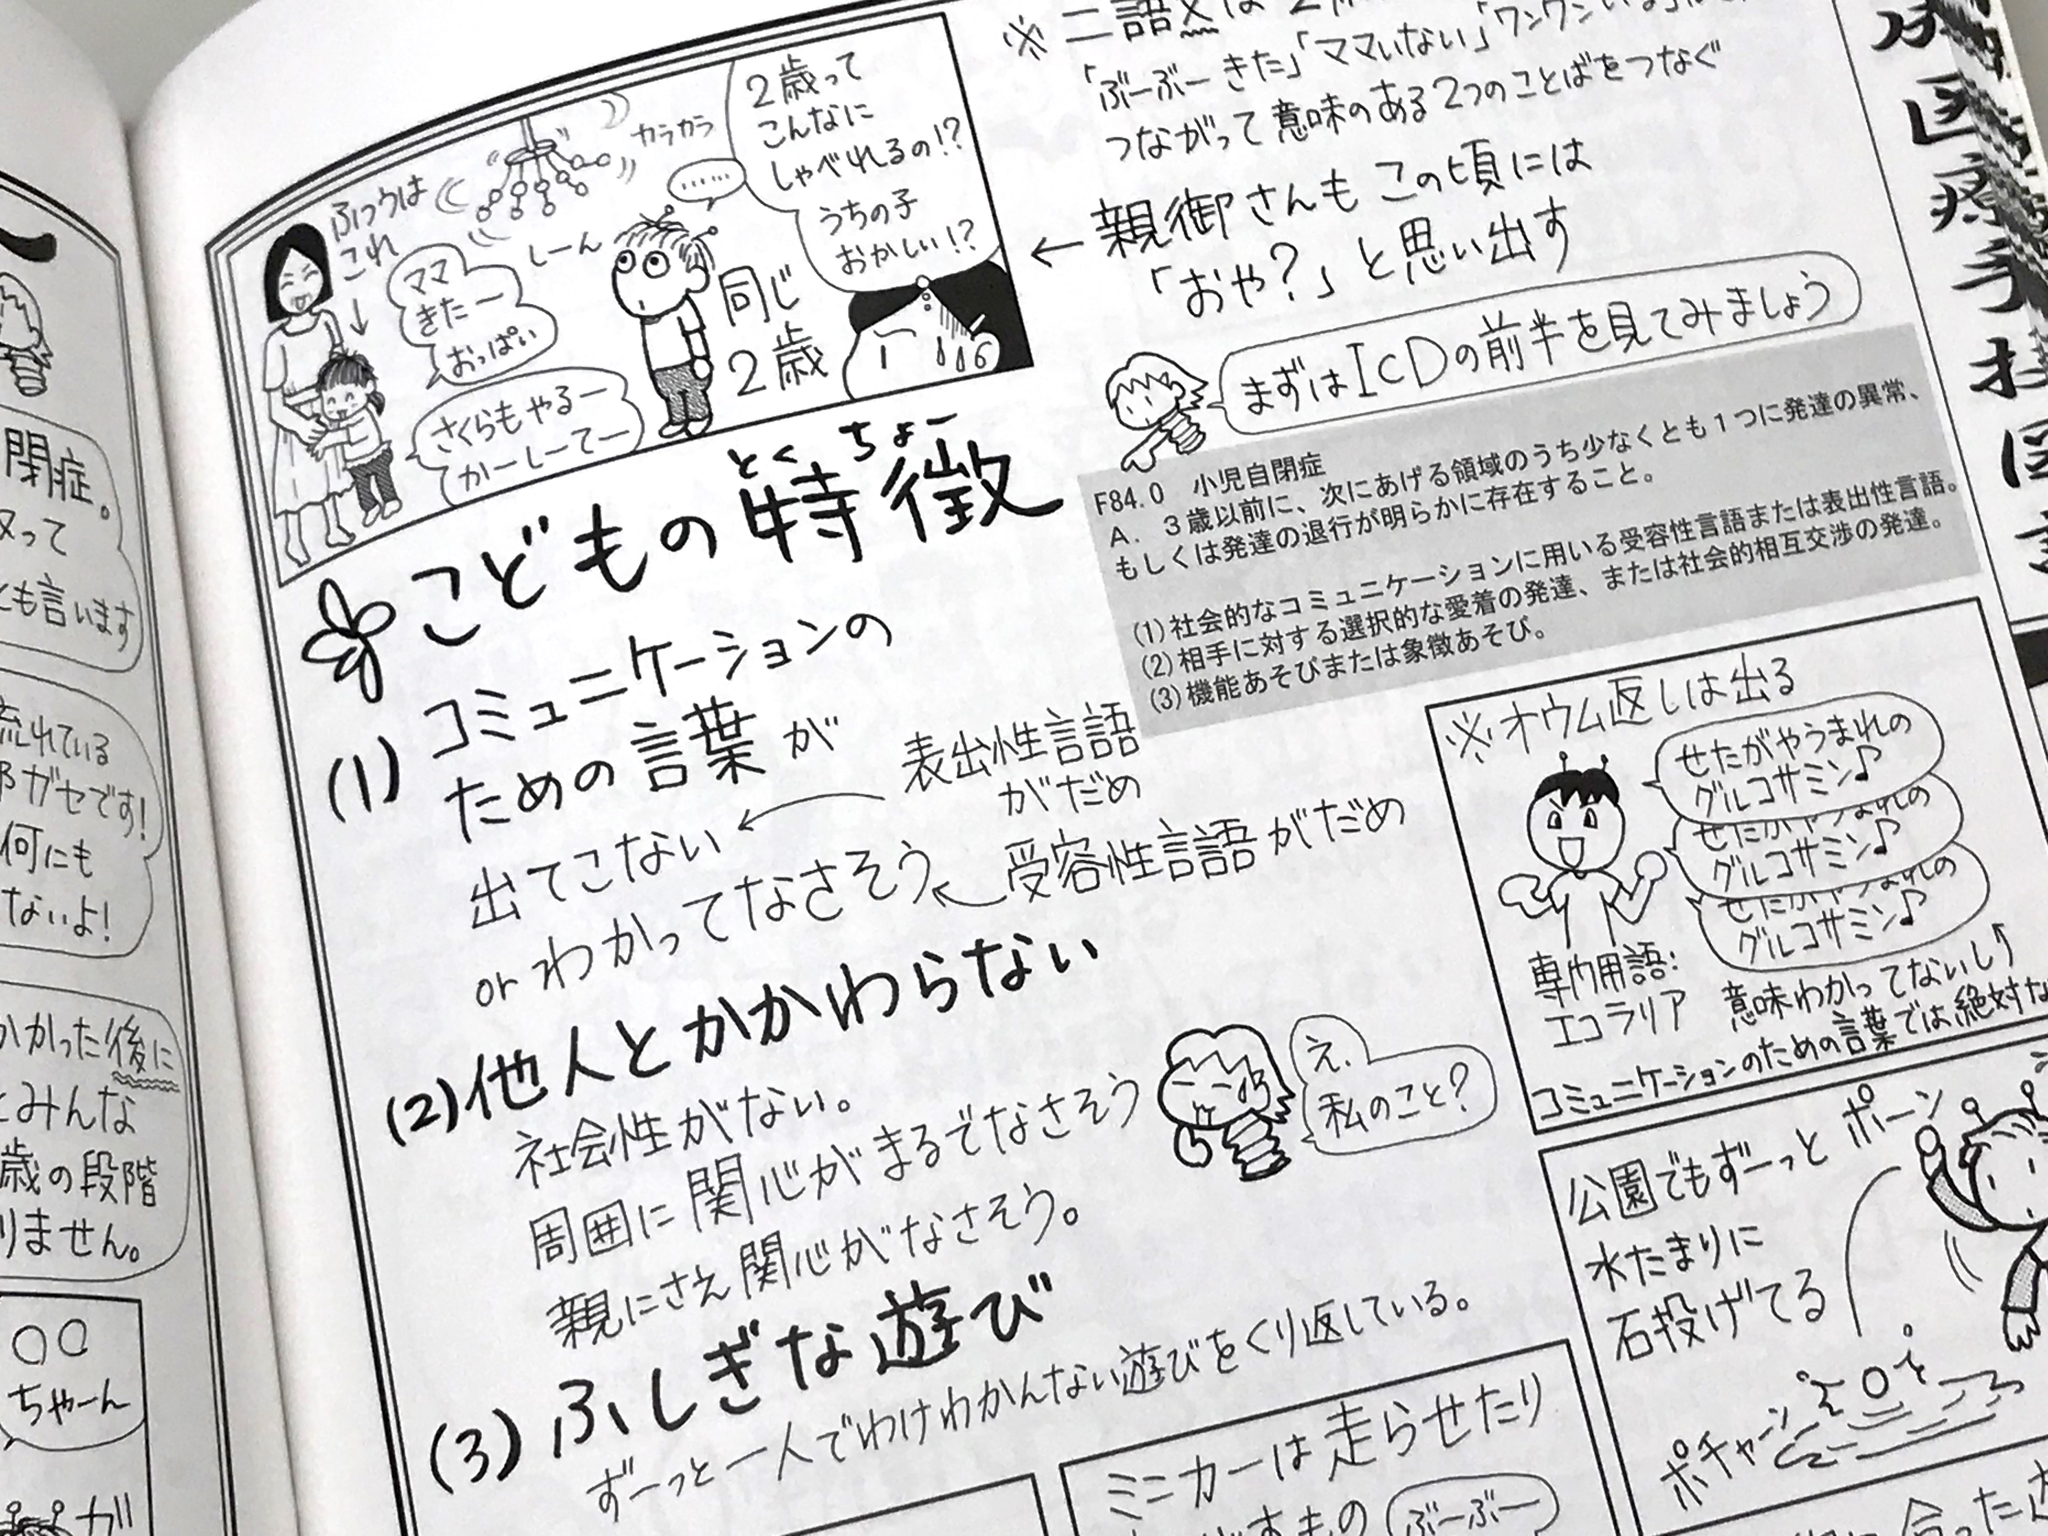 閉症。
って
とも言います
流れている
ガセです!
何にも
ないよ!
かかった後に
みんな
歳の段階
りません。
○○
ちゃーん
ガ
ふつうは
これ
ママ
きたー
おっぱい
さくらもやるー
かーしーてー
カラカラ
しーん
……
同じ
2歳
2歳って
こんなに
しゃべれるの!?
うちの子
おかしい!?
※二語文は
「ぶーぶー きた」「ママいない」「ワンワン
つながって意味のある2つのことばをつなぐ
←親御さんもこの頃には
「おや?」と思い出す
まずはICDの前半を見てみましょう
F84.0 小児自閉症
A. 3歳以前に、次にあげる領域のうち少なくとも1つに発達の異常、
もしくは発達の退行が明らかに存在すること。
(1)社会的なコミュニケーションに用いる受容性言語または表出性言語。
(2)相手に対する選択的な愛着の発達、または社会的相互交渉の発達。
(3)機能あそびまたは象徴あそび。
とく ちょー
こどもの特徴
(1)コミュニケーションの
ための言葉が
出てこない
表出性言語
がだめ
or わかってなさそう
受容性言語がだめ
(2)他人とかかわらない
社会性がない。
周囲に関心がまるでなさそう
親にさえ関心がなさそう。
え、
私のこと?
(3)ふしぎな遊び
ずーっと一人でわけわかんない遊びをくり返している。
ミニカーは走らせたり
ぶーぶー
※オウム返しは出る
せたがやうまれの
グルコサミン♪
せたがやうまれの
グルコサミン♪
せたがやうまれの
グルコサミン♪
専門用語:
エコラリア
意味わかってないし
コミュニケーションのための言葉では絶対な
公園でもずーっと
水たまりに
石投げてる
ポーン
ポチャーン
医療